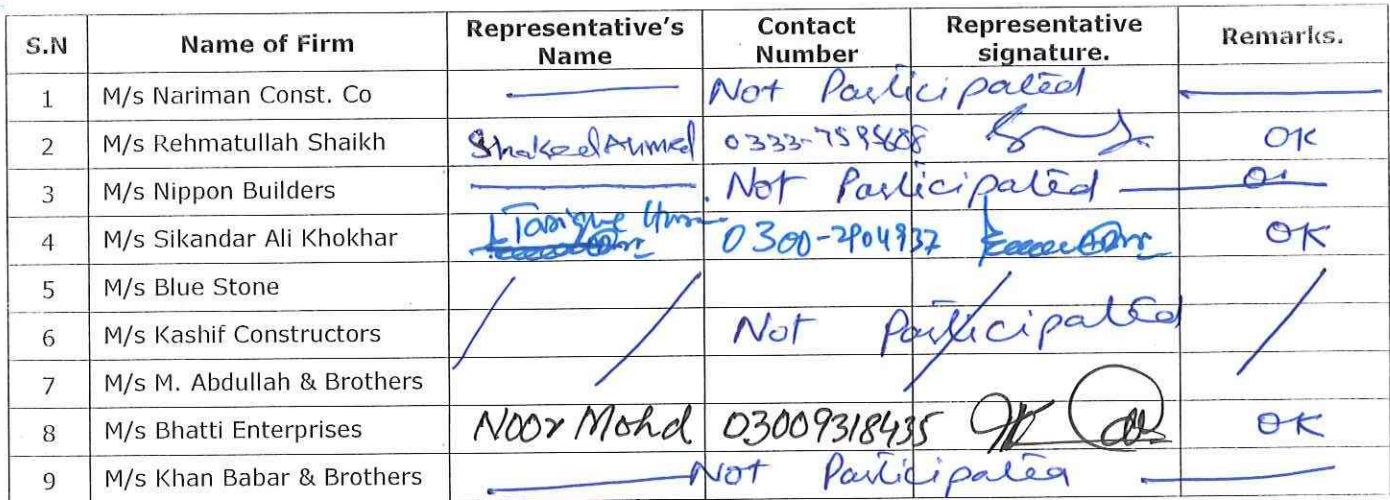 S.N Name of Firm Representative's Name Contact Number Representative signature. Remarks.
1 M/s Nariman Const. Co Not Participated
2 M/s Rehmatullah Shaikh Shakeel Ahmed 0333-7595608 OK
3 M/s Nippon Builders Not Participated
4 M/s Sikandar Ali Khokhar Tarique 0300-2904937 OK
5 M/s Blue Stone
6 M/s Kashif Constructors Not Participated
7 M/s M. Abdullah & Brothers
8 M/s Bhatti Enterprises Noor Mohd 03009318435 OK
9 M/s Khan Babar & Brothers Not Participated